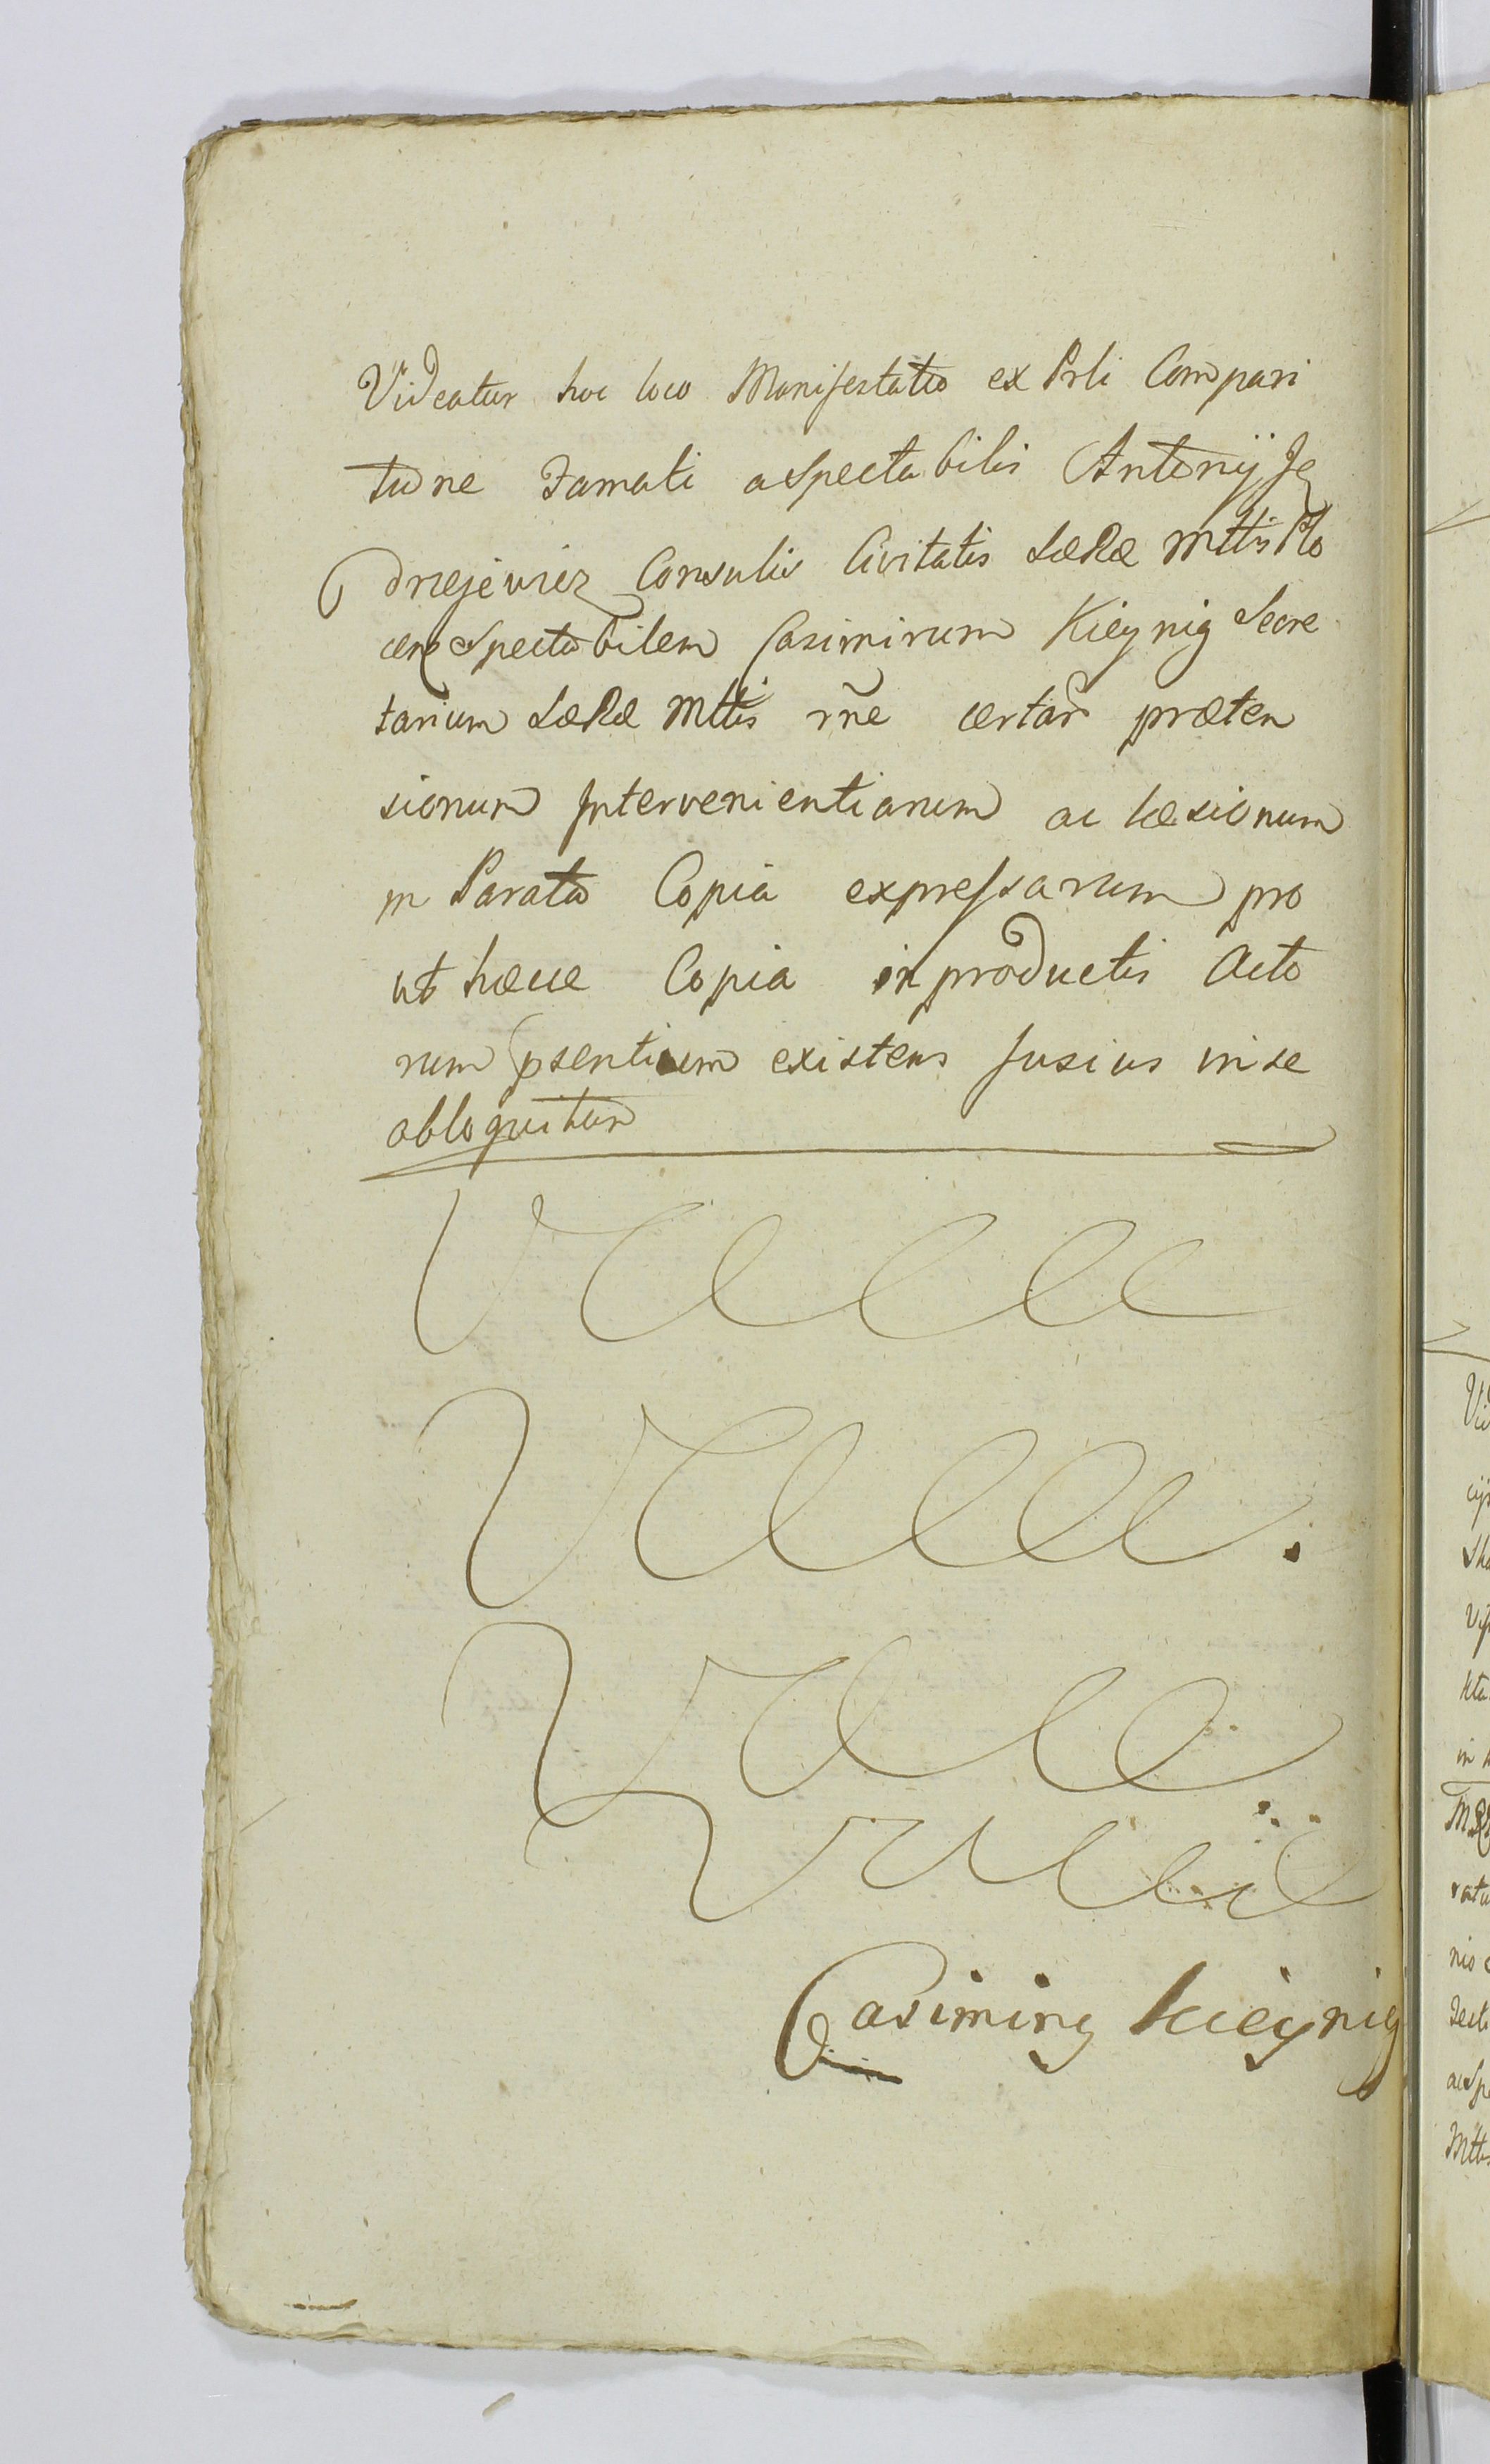 Videatur hoc loco Manifestatio ex Prli Compari
tione Famati ac Spectabilis Antonij Ję
drzejewicz Consulis Civitatis SæRæ Mttis Plo
cen Spectabilem Casimirum Kieynig Secre
tarium SæRæ Mttis rñe certar præten
sionum Intervenientiarum ac læsionum
in Parata Copia expressarum pro
ut hæcce Copia in productis Acto
rum psentium existens fusius in se
obloquitur
Casimirg Kieynig